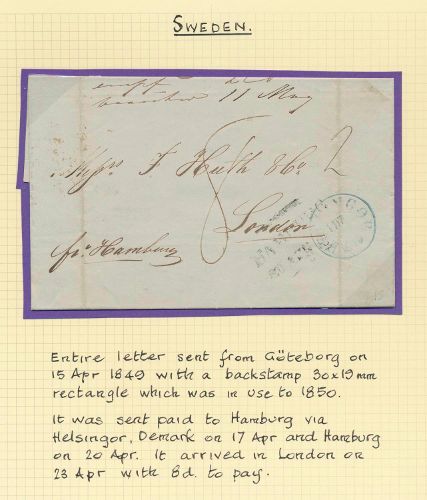 SWEDEN.
11 May
Messrs F Huth & Co. 2
8
London
fr: Hamburg
Entire letter sent from Göteborg on
15 Apr 1849 with a backstamp 30x19mm
rectangle which was in use to 1850.
It was sent paid to Hamburg via
Helsingor, Demark on 17 Apr and Hamburg
on 20 Apr. It arrived in London on
23 Apr with 8d. to pay.